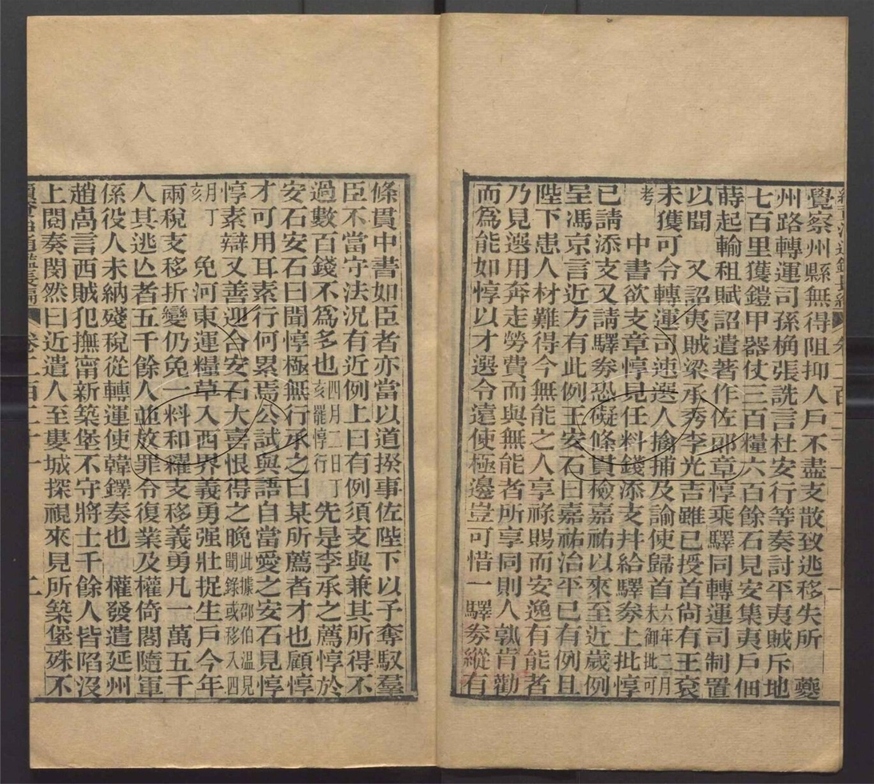 覺察州縣無得阻抑人戶不盡支散致逃移失所　夔
州路轉運司孫桷張詵言杜安行等奏討平夷賊斥地
七百里獲鎧甲器仗三百糧六百餘石見安集夷戶佃
蒔起輸租賦詔遣著作佐郎章惇乘驛同轉運司制置
以聞　又詔夷賊梁承秀李光吉雖已授首尚有王袞
未獲可令轉運司速選人擒捕及諭使歸首六年二月未御批可
考　中書欲支章惇見任料錢添支幷給驛券上批惇
已請添支又請驛券恐礙條貫檢嘉祐以來至近歲例
呈馮京言近方有此例王安石曰嘉祐治平已有例且
陛下患人材難得今無能之人享祿賜而安逸有能者
乃見選用奔走勞費而與無能者所享同則人孰肯勸
而爲能如惇以才選令遠使極邊豈可惜一驛券縱有
條貫中書如臣者亦當以道揆事佐陛下以予奪馭羣
臣不當守法況有近例上曰有例須支與兼其所得不
過數百錢不爲多也四月二日丁亥罷惇行　先是李承之薦惇於
安石安石曰聞惇極無行承之曰某所薦者才也顧惇
才可用耳素行何累焉公試與語自當愛之安石見惇
惇素辯又善迎合安石大喜恨得之晚此據邵伯温見聞錄或移入四
月丁亥　免河東運糧草入西界義勇强壯捉生戶今年
兩稅支移折變仍免一料和糴支移義勇凡一萬五千
人其逃亾者五千餘人並放罪令復業及權倚閣隨軍
係役人未納殘稅從轉運使韓鐸奏也　權發遣延州
趙卨言西賊犯撫甯新築堡不守將士千餘人皆陷沒
上閱奏閔然曰近遣人至婁城探視來見所築堡殊不
續資治通鑑長編　卷二百二十一　二